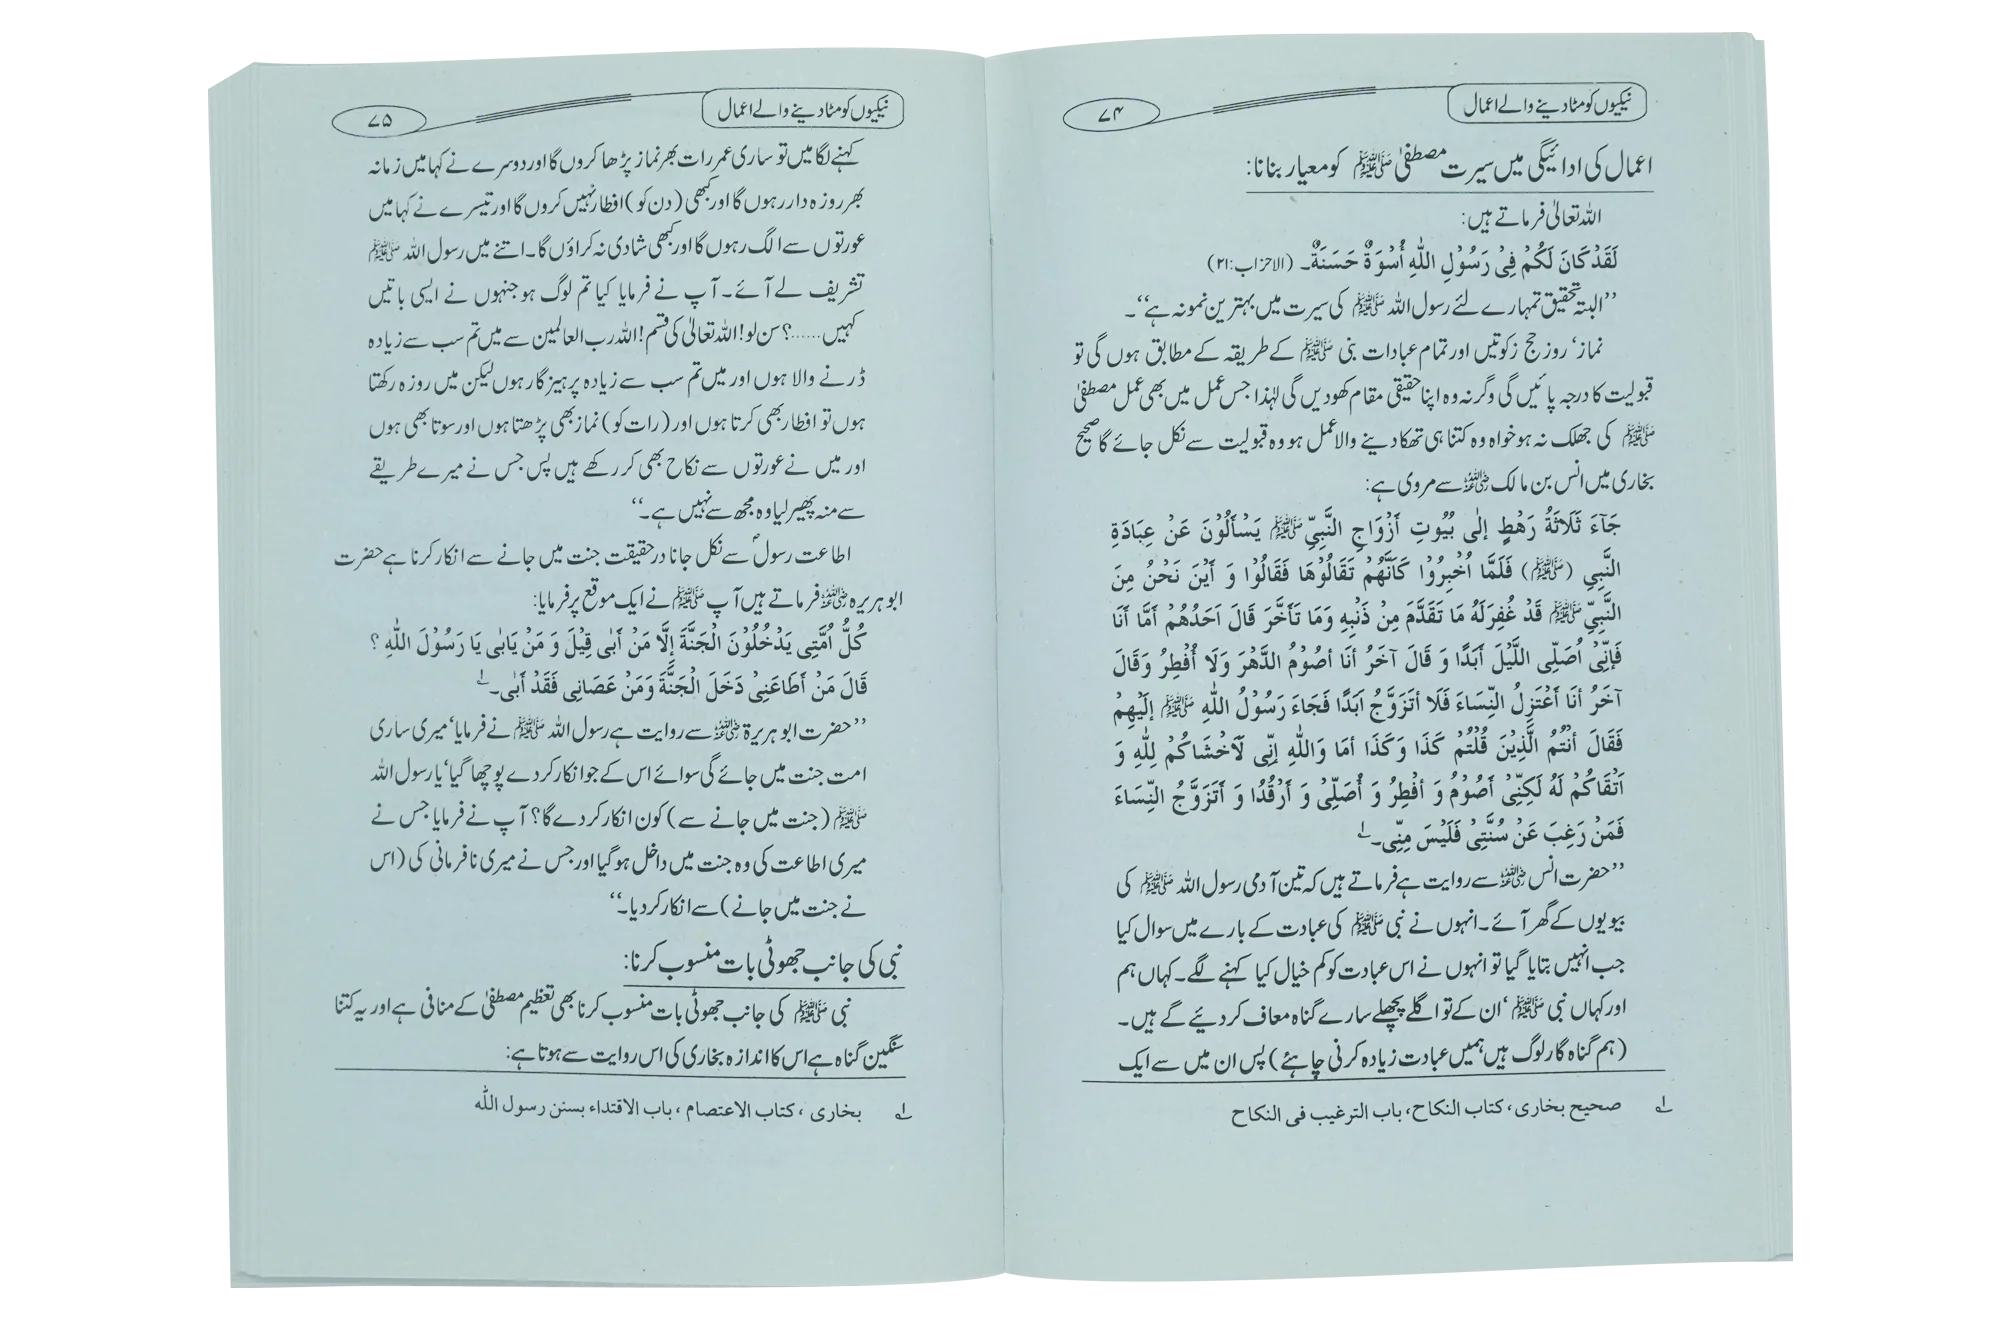 نیکیوں کو مٹا دینے والے اعمال
۷۴
اعمال کی ادائیگی میں سیرت مصطفیٰ ﷺ کو معیار بنانا:
اللہ تعالیٰ فرماتے ہیں:
لَقَدْ كَانَ لَكُمْ فِيْ رَسُوْلِ اللّٰهِ أُسْوَةٌ حَسَنَةٌ۔ (الاحزاب:۲۱)
’’البتہ تحقیق تمہارے لئے رسول اللہ ﷺ کی سیرت میں بہترین نمونہ ہے‘‘۔
نماز‘ روز حج زکوتیں اور تمام عبادات بنی ﷺ کے طریقہ کے مطابق ہوں گی تو
قبولیت کا درجہ پائیں گی وگرنہ وہ اپنا حقیقی مقام کھو دیں گی لہٰذا جس عمل میں بھی عمل مصطفیٰ
ﷺ کی جھلک نہ ہو خواہ وہ کتنا ہی تھکا دینے والا عمل ہو وہ قبولیت سے نکل جائے گا صحیح
بخاری میں انس بن مالک رضی اللہ عنہ سے مروی ہے:
جَآءَ ثَلَاثَةُ رَهْطٍ إِلٰى بُيُوتِ أَزْوَاجِ النَّبِيِّ ﷺ يَسْأَلُوْنَ عَنْ عِبَادَةِ
النَّبِيِ (ﷺ) فَلَمَّا اُخْبِرُوْا كَاَنَّهُمْ تَقَالُوْهَا فَقَالُوْا وَ أَيْنَ نَحْنُ مِنَ
النَّبِيِّ ﷺ قَدْ غُفِرَلَهُ مَا تَقَدَّمَ مِنْ ذَنْبِهِ وَمَا تَأَخَّرَ قَالَ اَحَدُهُمْ أَمَّا أَنَا
فَاِنِّيْ اُصَلِّى اللَّيْلَ أَبَدًا وَ قَالَ آخَرُ أنَا أصُوْمُ الدَّهْرَ وَلَا أُفْطِرُ وَقَالَ
آخَرُ أنَا أَعْتَزِلُ النِّسَاءَ فَلَا أتَزَوَّجُ اَبَدًا فَجَاءَ رَسُوْلُ اللّٰهِ ﷺ إلَيْهِمْ
فَقَالَ أنْتُمُ الَّذِيْنَ قُلْتُمْ كَذَا وَكَذَا أمَا وَاللّٰهِ اِنِّى لَاَخْشَاكُمْ لِلّٰهِ وَ
اَتْقَاكُمْ لَهُ لَكِنِّيْ أَصُوْمُ وَ أفْطِرُ وَ أُصَلِّيْ وَ أَرْقُدُا وَ أَتَزَوَّجُ النِّسَاءَ
فَمَنْ رَغِبَ عَنْ سُنَّتِيْ فَلَيْسَ مِنِّى۔ ۱؎
’’حضرت انس رضی اللہ عنہ سے روایت ہے فرماتے ہیں کہ تین آدمی رسول اللہ ﷺ کی
بیویوں کے گھر آئے۔ انہوں نے نبی ﷺ کی عبادت کے بارے میں سوال کیا
جب انہیں بتایا گیا تو انہوں نے اس عبادت کو کم خیال کیا کہنے لگے۔ کہاں ہم
اور کہاں نبی ﷺ ‘ ان کے تو اگلے پچھلے سارے گناہ معاف کر دئیے گے ہیں۔
(ہم گناہ گار لوگ ہیں ہمیں عبادت زیادہ کرنی چاہئے) پس ان میں سے ایک
۱؎ صحیح بخاری، کتاب النکاح، باب الترغیب فی النکاح
نیکیوں کو مٹا دینے والے اعمال
۷۵
کہنے لگا میں تو ساری عمر رات بھر نماز پڑھا کروں گا اور دوسرے نے کہا میں زمانہ
بھر روزہ دار رہوں گا اور کبھی (دن کو) افطار نہیں کروں گا اور تیسرے نے کہا میں
عورتوں سے الگ رہوں گا اور کبھی شادی نہ کراؤں گا۔ اتنے میں رسول اللہ ﷺ
تشریف لے آئے۔ آپ نے فرمایا کیا تم لوگ ہو جنہوں نے ایسی باتیں
کہیں......؟ سن لو! اللہ تعالیٰ کی قسم! اللہ رب العالمین سے میں تم سب سے زیادہ
ڈرنے والا ہوں اور میں تم سب سے زیادہ پرہیز گار ہوں لیکن میں روزہ رکھتا
ہوں تو افطار بھی کرتا ہوں اور (رات کو) نماز بھی پڑھتا ہوں اور سوتا بھی ہوں
اور میں نے عورتوں سے نکاح بھی کر رکھے ہیں پس جس نے میرے طریقے
سے منہ پھیر لیا وہ مجھ سے نہیں ہے۔‘‘
اطاعت رسولؐ سے نکل جانا در حقیقت جنت میں جانے سے انکار کرنا ہے حضرت
ابو ہریرہ رضی اللہ عنہ فرماتے ہیں آپ ﷺ نے ایک موقع پر فرمایا:
كُلُّ اُمَّتِى يَدْخُلُوْنَ الْجَنَّةَ إِلَّا مَنْ أَبٰى قِيْلَ وَ مَنْ يَابٰى يَا رَسُوْلَ اللّٰهِ ؟
قَالَ مَنْ أَطَاعَنِيْ دَخَلَ الْجَنَّةَ وَمَنْ عَصَانِى فَقَدْ أَبٰى۔ ۱؎
’’حضرت ابو ہریرۃ رضی اللہ عنہ سے روایت ہے رسول اللہ ﷺ نے فرمایا‘ میری ساری
امت جنت میں جائے گی سوائے اس کے جو انکار کر دے پوچھا گیا‘ یا رسول اللہ
ﷺ (جنت میں جانے سے) کون انکار کر دے گا؟ آپ نے فرمایا جس نے
میری اطاعت کی وہ جنت میں داخل ہو گیا اور جس نے میری نافرمانی کی (اس
نے جنت میں جانے) سے انکار کر دیا۔‘‘
نبی کی جانب جھوٹی بات منسوب کرنا:
نبی ﷺ کی جانب جھوٹی بات منسوب کرنا بھی تعظیم مصطفیٰ کے منافی ہے اور یہ کتنا
سنگین گناہ ہے اس کا اندازہ بخاری کی اس روایت سے ہوتا ہے:
۱؎ بخاری ، کتاب الاعتصام ، باب الاقتداء بسنن رسول اللّٰه